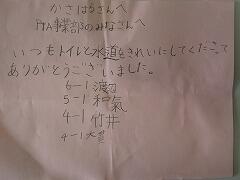 かさはらさんへ
PTA事業部のみなさんへ
いつもトイレと水道をきれいにしてくださって
ありがとうございました。
6-1 渡辺
5-1 和氣
4-1 竹井
4-1